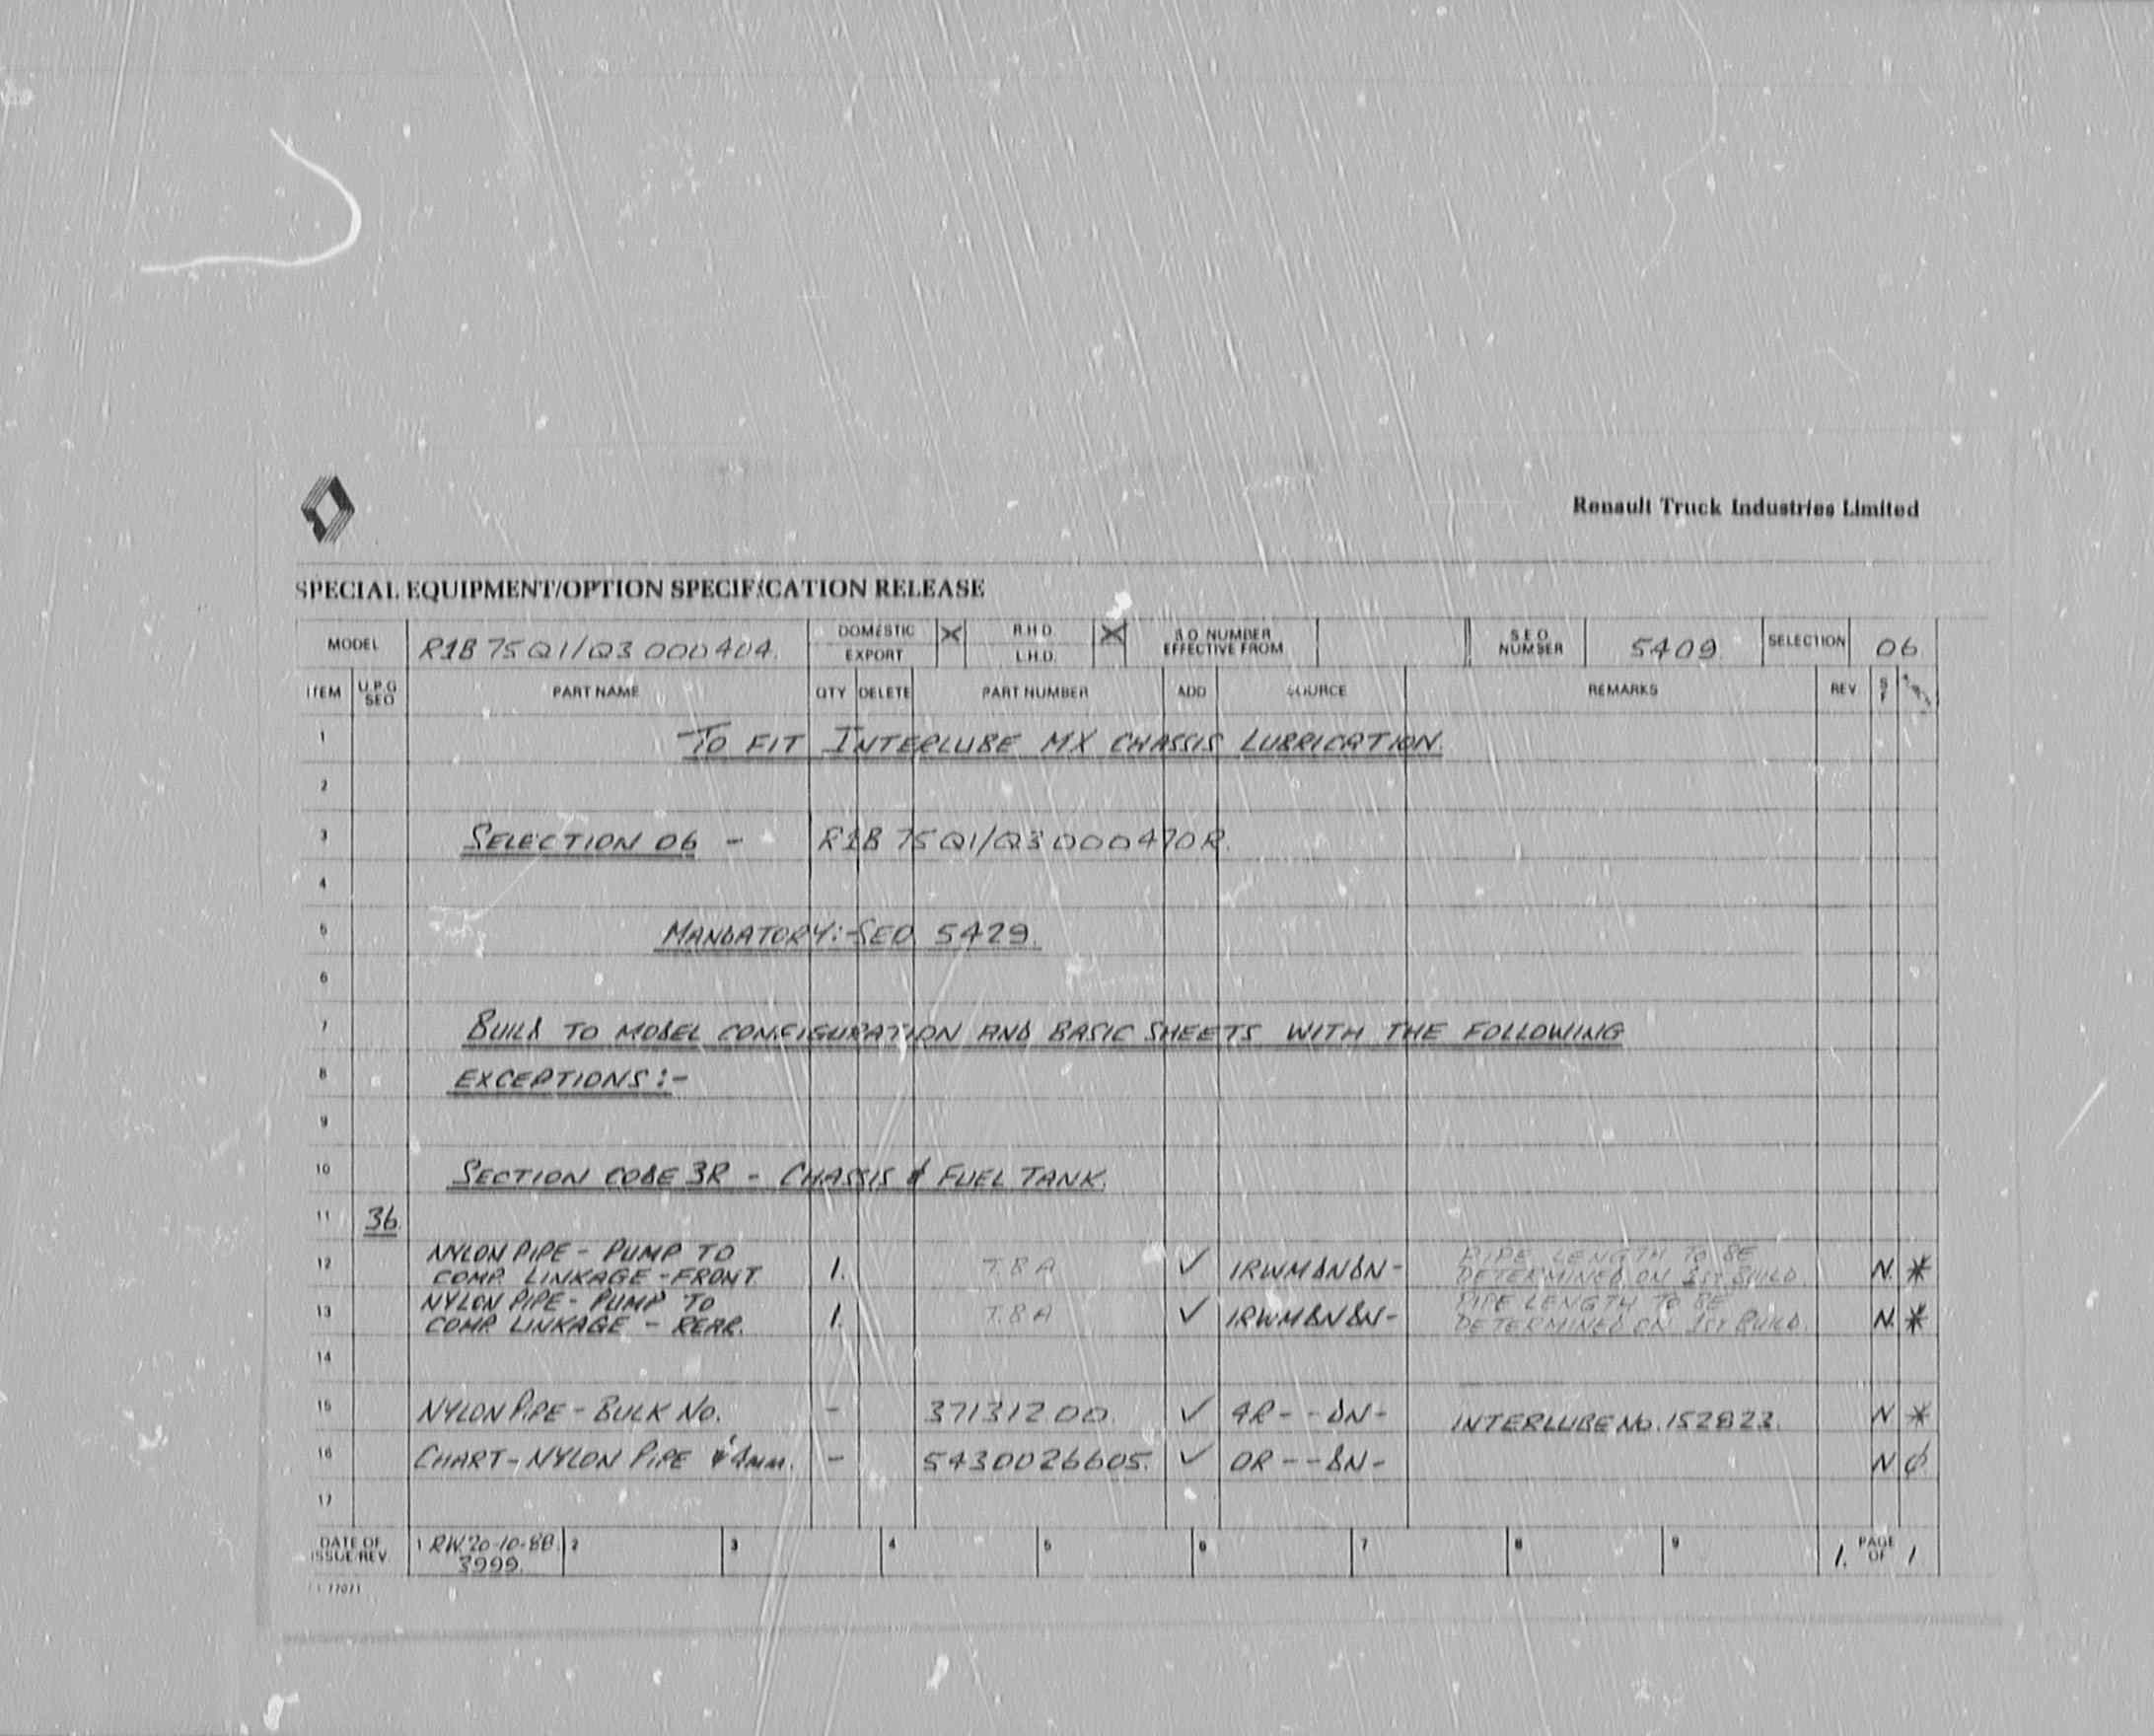 Renault Truck Industries Limited
SPECIAL EQUIPMENT/OPTION SPECIFICATION RELEASE
MODEL R1B 75 Q1/Q3 000404. DOMESTIC EXPORT X R.H.D. L.H.D. X S.O. NUMBER EFFECTIVE FROM S.E.O. NUMBER 5409 SELECTION 06
ITEM U.P.G SEO PART NAME QTY DELETE PART NUMBER ADD SOURCE REMARKS REV
1 TO FIT INTERLUBE MX CHASSIS LUBRICATION.
2
3 SELECTION 06 - R1B 75 Q1/Q3 000470R.
4
5 MANDATORY:- SEO 5429.
6
7 BUILD TO MODEL CONFIGURATION AND BASIC SHEETS WITH THE FOLLOWING
8 EXCEPTIONS:-
9
10 SECTION CODE 3R - CHASSIS & FUEL TANK.
11 36.
12 NYLON PIPE - PUMP TO COMP. LINKAGE - FRONT. 1. T.B.A ✓ 1RWMDNDN- PIPE LENGTH TO BE DETERMINED ON 1ST BUILD. N. *
13 NYLON PIPE - PUMP TO COMP. LINKAGE - REAR. 1. T.B.A ✓ 1RWMDNDN- PIPE LENGTH TO BE DETERMINED ON 1ST BUILD. N. *
14
15 NYLON PIPE - BULK NO. - 37131200. ✓ 4R---DN- INTERLUBE NO. 152823. N *
16 CHART - NYLON PIPE 4mm. - 5430026605. ✓ 0R---DN- N ϕ
17
DATE OF ISSUE/REV. 1 RW. 20-10-88. 3999. 2 3 4 5 6 7 8 9 1. PAGE OF 1
77071